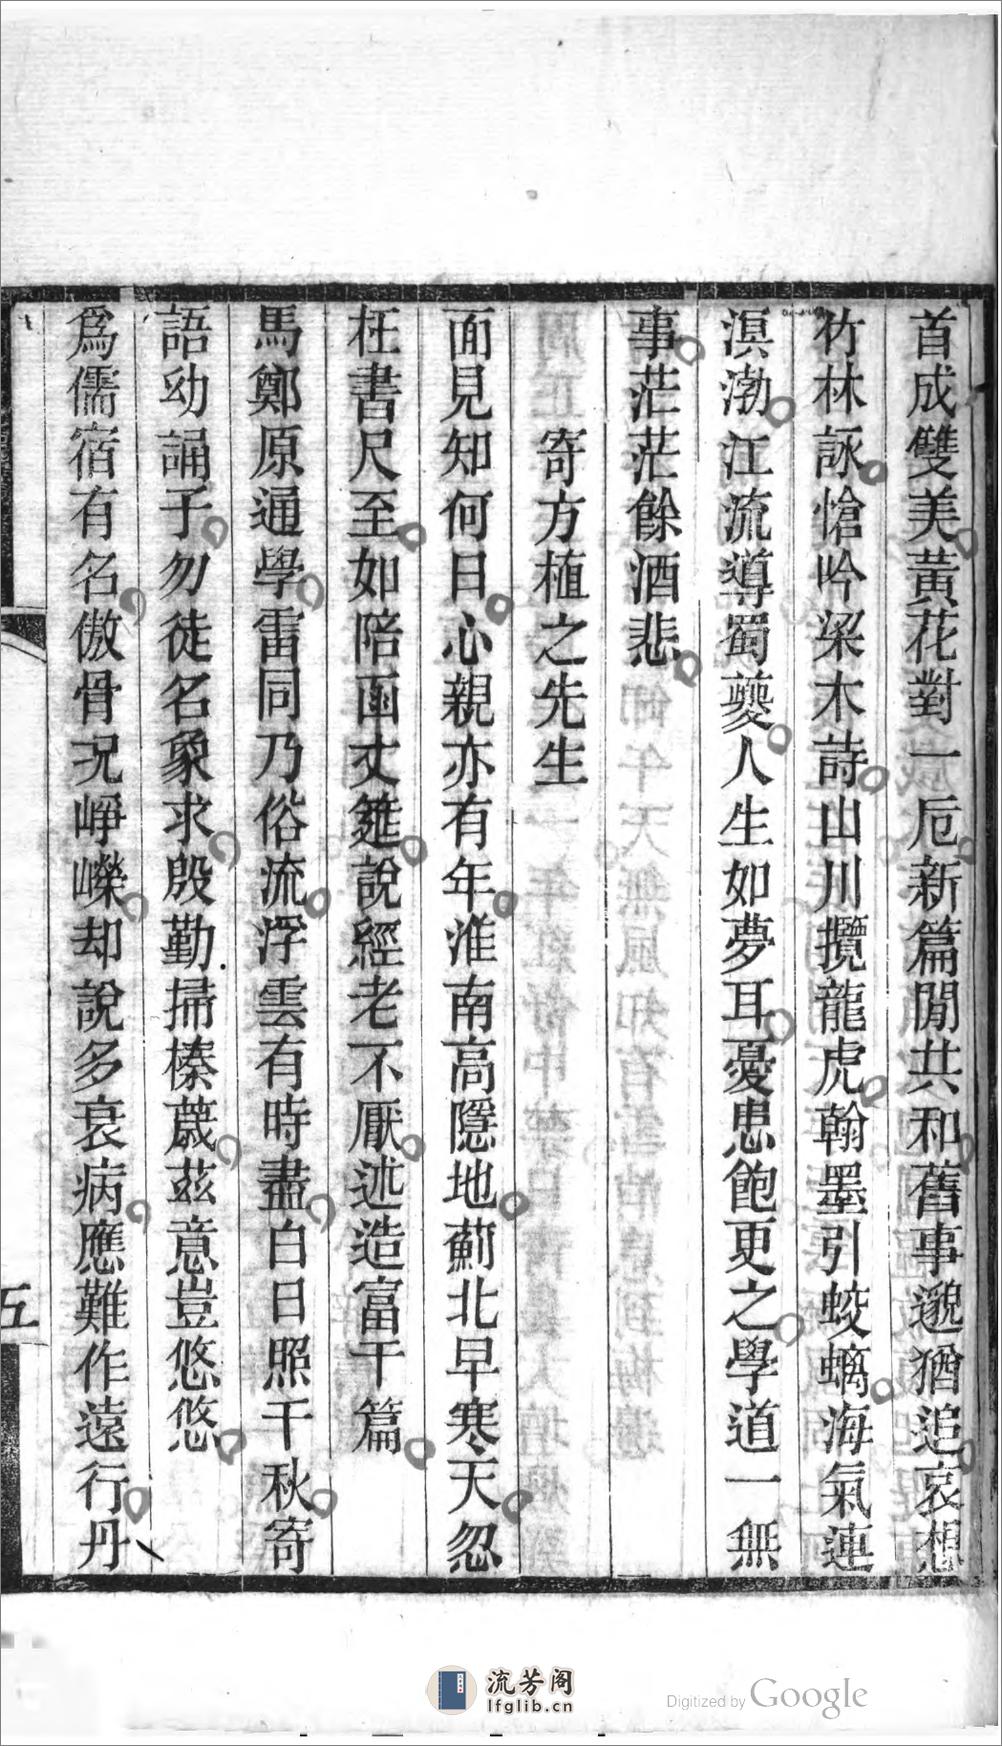 首成雙美黃花對一卮新篇閒共和舊事邈猶追哀想
竹林詠愴吟梁木詩山川攬龍虎翰墨引蛟螭海氣連
溟渤江流導蜀夔人生如夢耳憂患飽更之學道一無
事茫茫餘酒悲
寄方植之先生
面見知何日心親亦有年淮南高隱地薊北早寒天忽
枉書尺至如陪函丈筵說經老不厭述造富千篇
馬鄭原通學雷同乃俗流浮雲有時盡白日照千秋寄
語幼誦子勿徒名象求殷勤掃榛薉茲意豈悠悠
爲儒宿有名傲骨况崢嶸却說多衰病應難作遠行丹
五
流芳阁
lfglib.cn
Digitized by Google